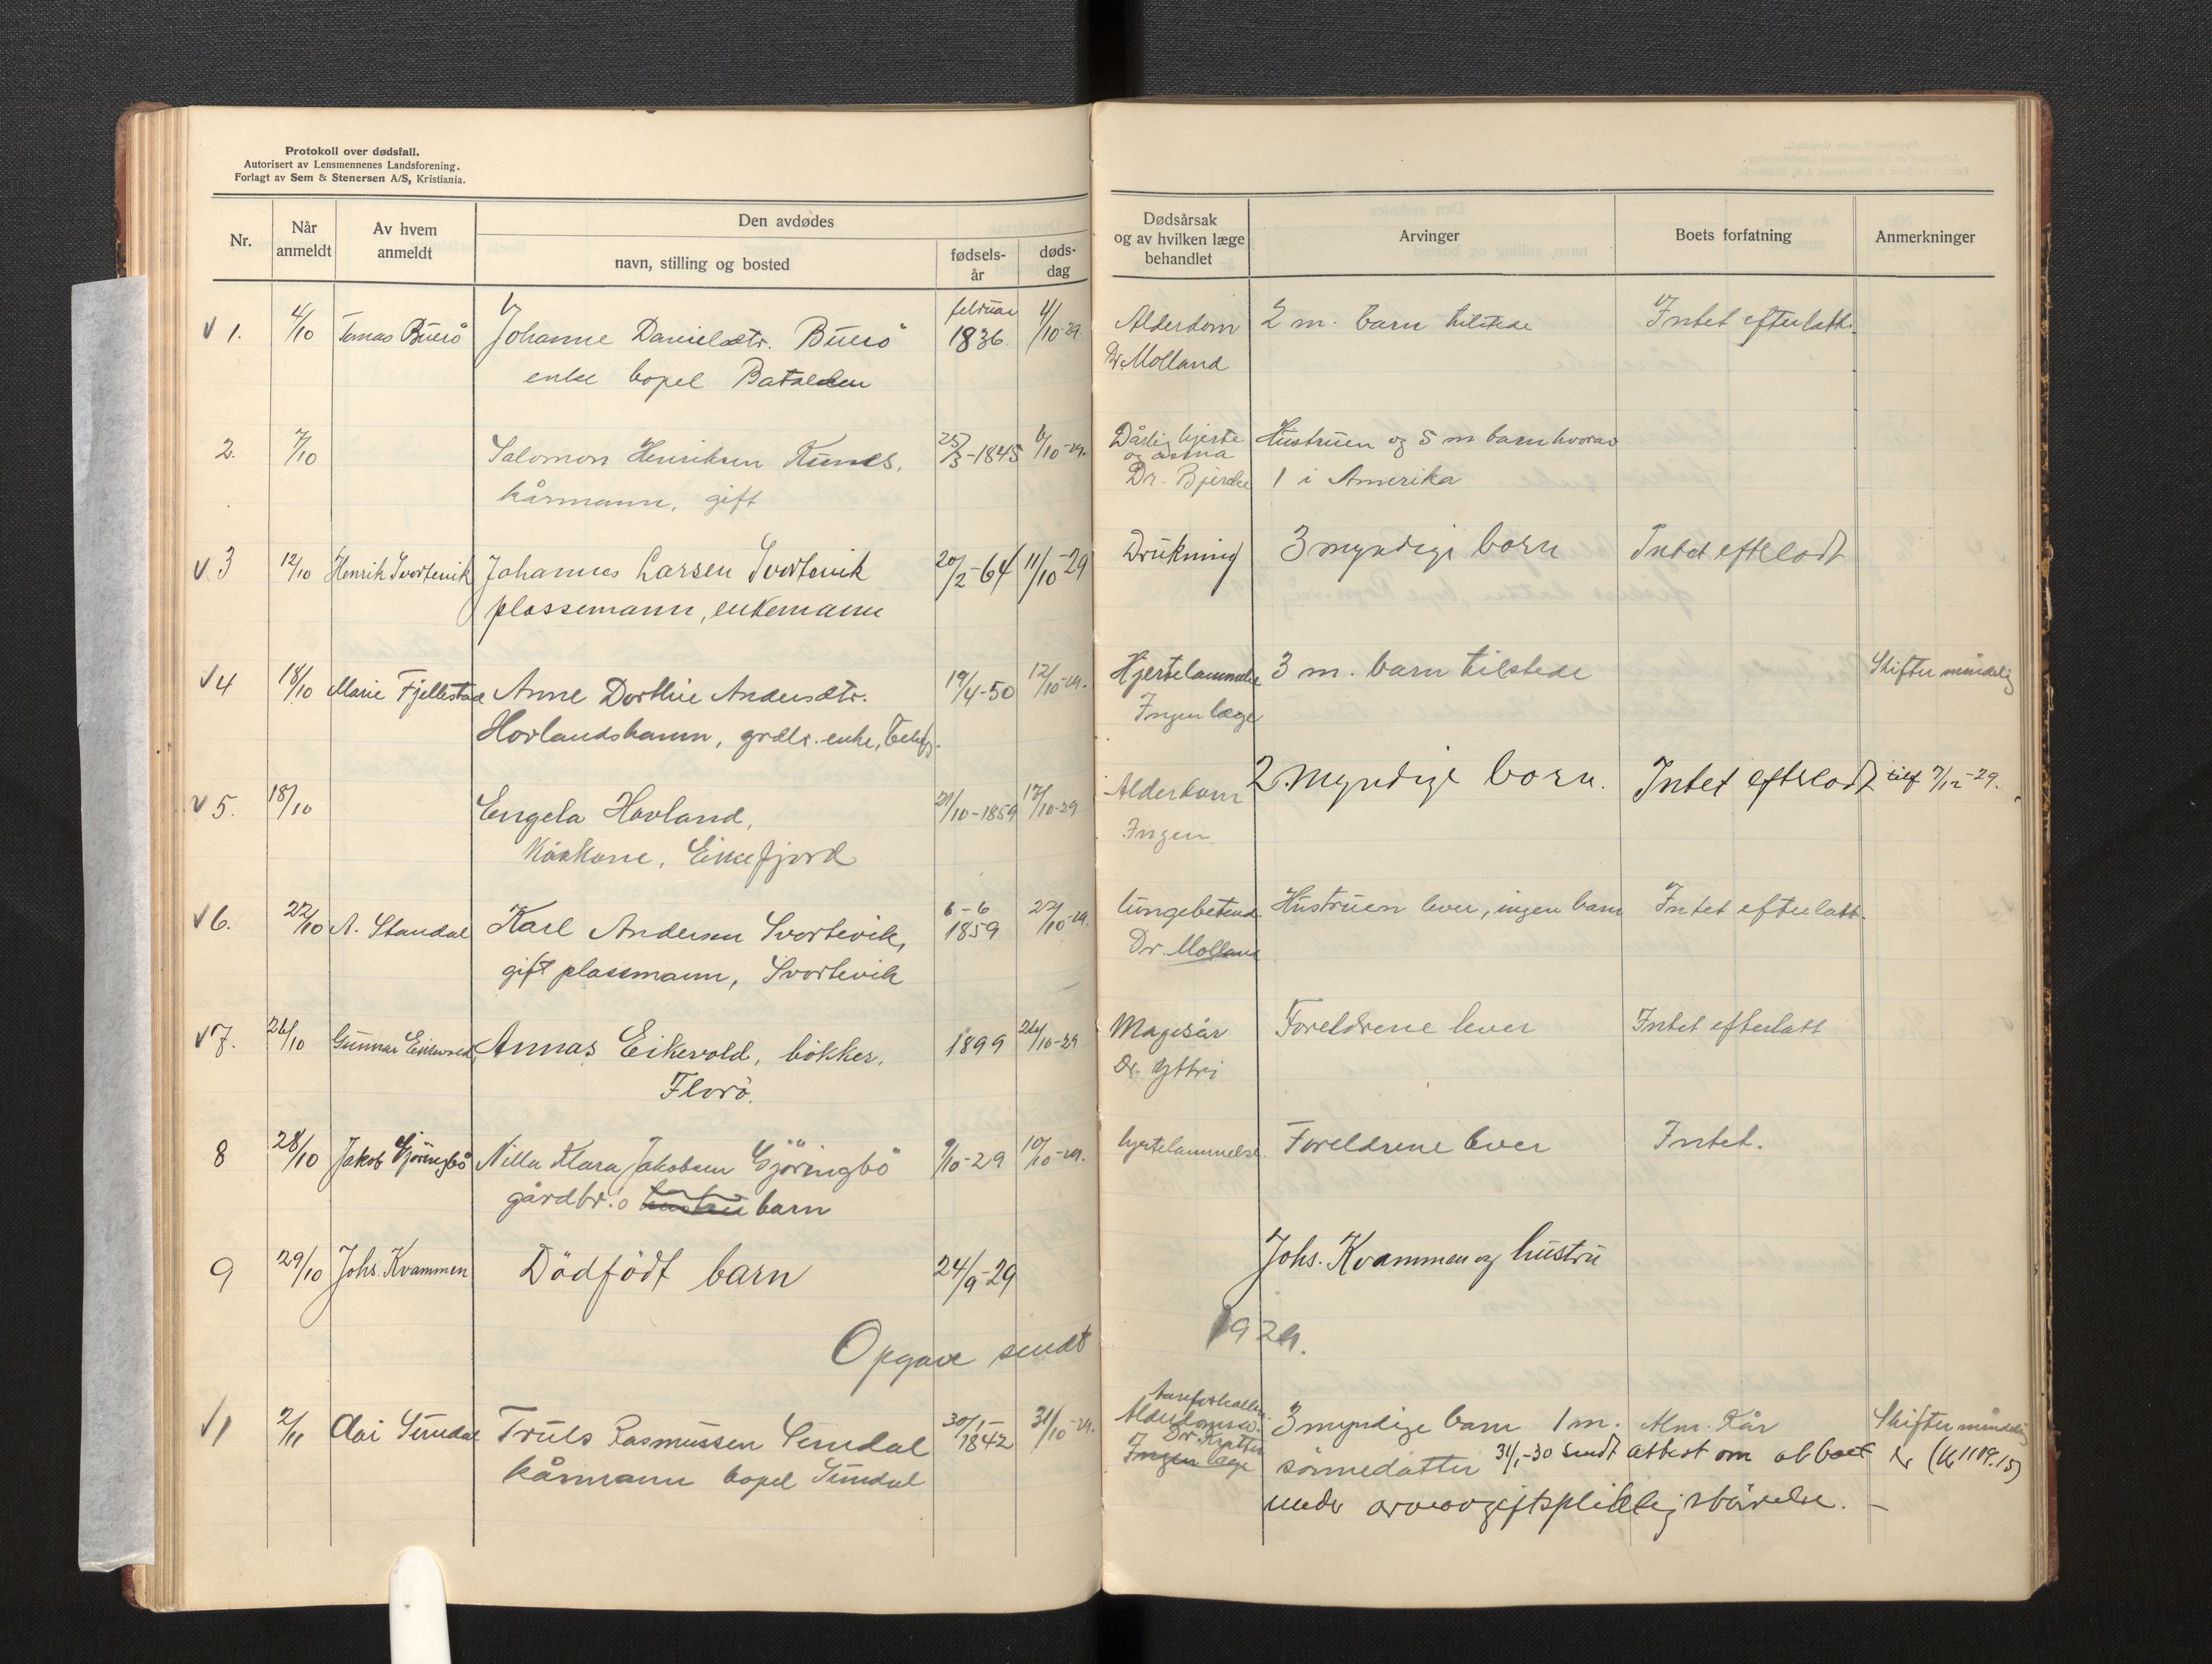 Protokoll over dødsfall.
Autorisert av Lensmennenes Landsforening.
Forlagt av Sem & Stenersen A/S, Kristiania.
Nr.
Når anmeldt
Av hvem anmeldt
Den avdødes
navn, stilling og bosted
fødsels-år
døds-dag
Dødsårsak og av hvilken læge behandlet
Arvinger
Boets forfatning
Anmerkninger
V 1. 4/10 Tomas Buerö Johanne Danielsdtr. Buerö februar 1836 4/10-29. Alderdom 2 m. barn tilstede Intet efterlatt.
enke bopel Batalden Dr. Molland
2. 7/10 Salomon Henriksen 25/3-1845 6/10-29. Dårlig hjerte og astma Hustruen og 5 m barn hvorav
kårmann, gift Dr. 1 i Amerika
V 3 12/10 Henrik Svortevik Johannes Larsen Svortevik 20/2-64 11/10-29 Drukning 3 myndige born Intet efterlodt
plassemann, enkemann
V 4 18/10 Marie Fjellestad Anne Dorthie Andersdtr. 19/4-50 12/10-29. Hjertelammelse 3 m. barn tilstede Skifter mindelig
Hovlandshamn, grdbr. enke, Ingen læge
V 5. 18/10 Engela Hovland, 21/10-1859 17/10-29 Alderdom 2 myndige born. Intet efterlodt tilf 7/12-29.
Kårkone, Eikefjord Ingen.
V 6. 22/10 A. Standal Karl Andersen Svortevik, 6-6 1859 22/10-29. lungebetend. Hustruen lever, ingen barn Intet efterlatt.
gift plassmann, Svortevik Dr. Molland
V 7. 26/10 Gunnar Eikevold, Annas Eikevold, bökker, 1899 24/10-29 Magesår Foreldrene lever Intet efterlatt
Florö. Dr. Yttri
8 28/10 Jakob Gjöringbö Nilla Klara Jakobsen Gjöringbö 9/10-29 10/10-29. hjertelammelse. Foreldrene lever Intet.
gårdbr.s hustru barn
9 29/10 Johs. Kvammen Dödfödt barn 24/9-29 Johs. Kvammen og hustru
Opgave sendt 1929.
V 1 2/11 Sundal Truls Rasmussen Sundal 30/1-1842 31/10-29. Åreforkalkn. Alderdomssv. 3 myndige barn 1 m. Alm. Kår Skifter mindelig
kårmann bopel Sundal Dr. Ingen læge sönnedatter 31/1-30 sendt attest om at boet er
under arveavgiftspliktig störrelse. —